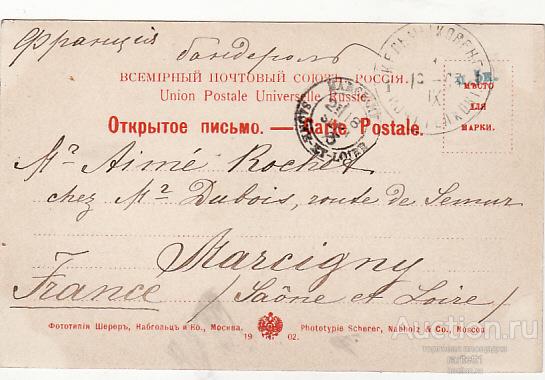 Франція бандероль
ВСЕМІРНЫЙ ПОЧТОВЫЙ СОЮЗЪ. РОССІЯ.
Union Postale Universelle Russie.
МѢСТО
ДЛЯ
МАРКИ.
MARCIGNY
SAÔNE-ET-LOIRE
Открытое письмо. — Carte Postale.
Mr Aimé Rochet
chez Mr Dubois, route de Semur
Marcigny
France / Saône et Loire /
Фототипія Шереръ, Набгольцъ и Ко., Москва.
19 02.
Phototypie Scherer, Nabholz & Co. Moscou
Auction.ru